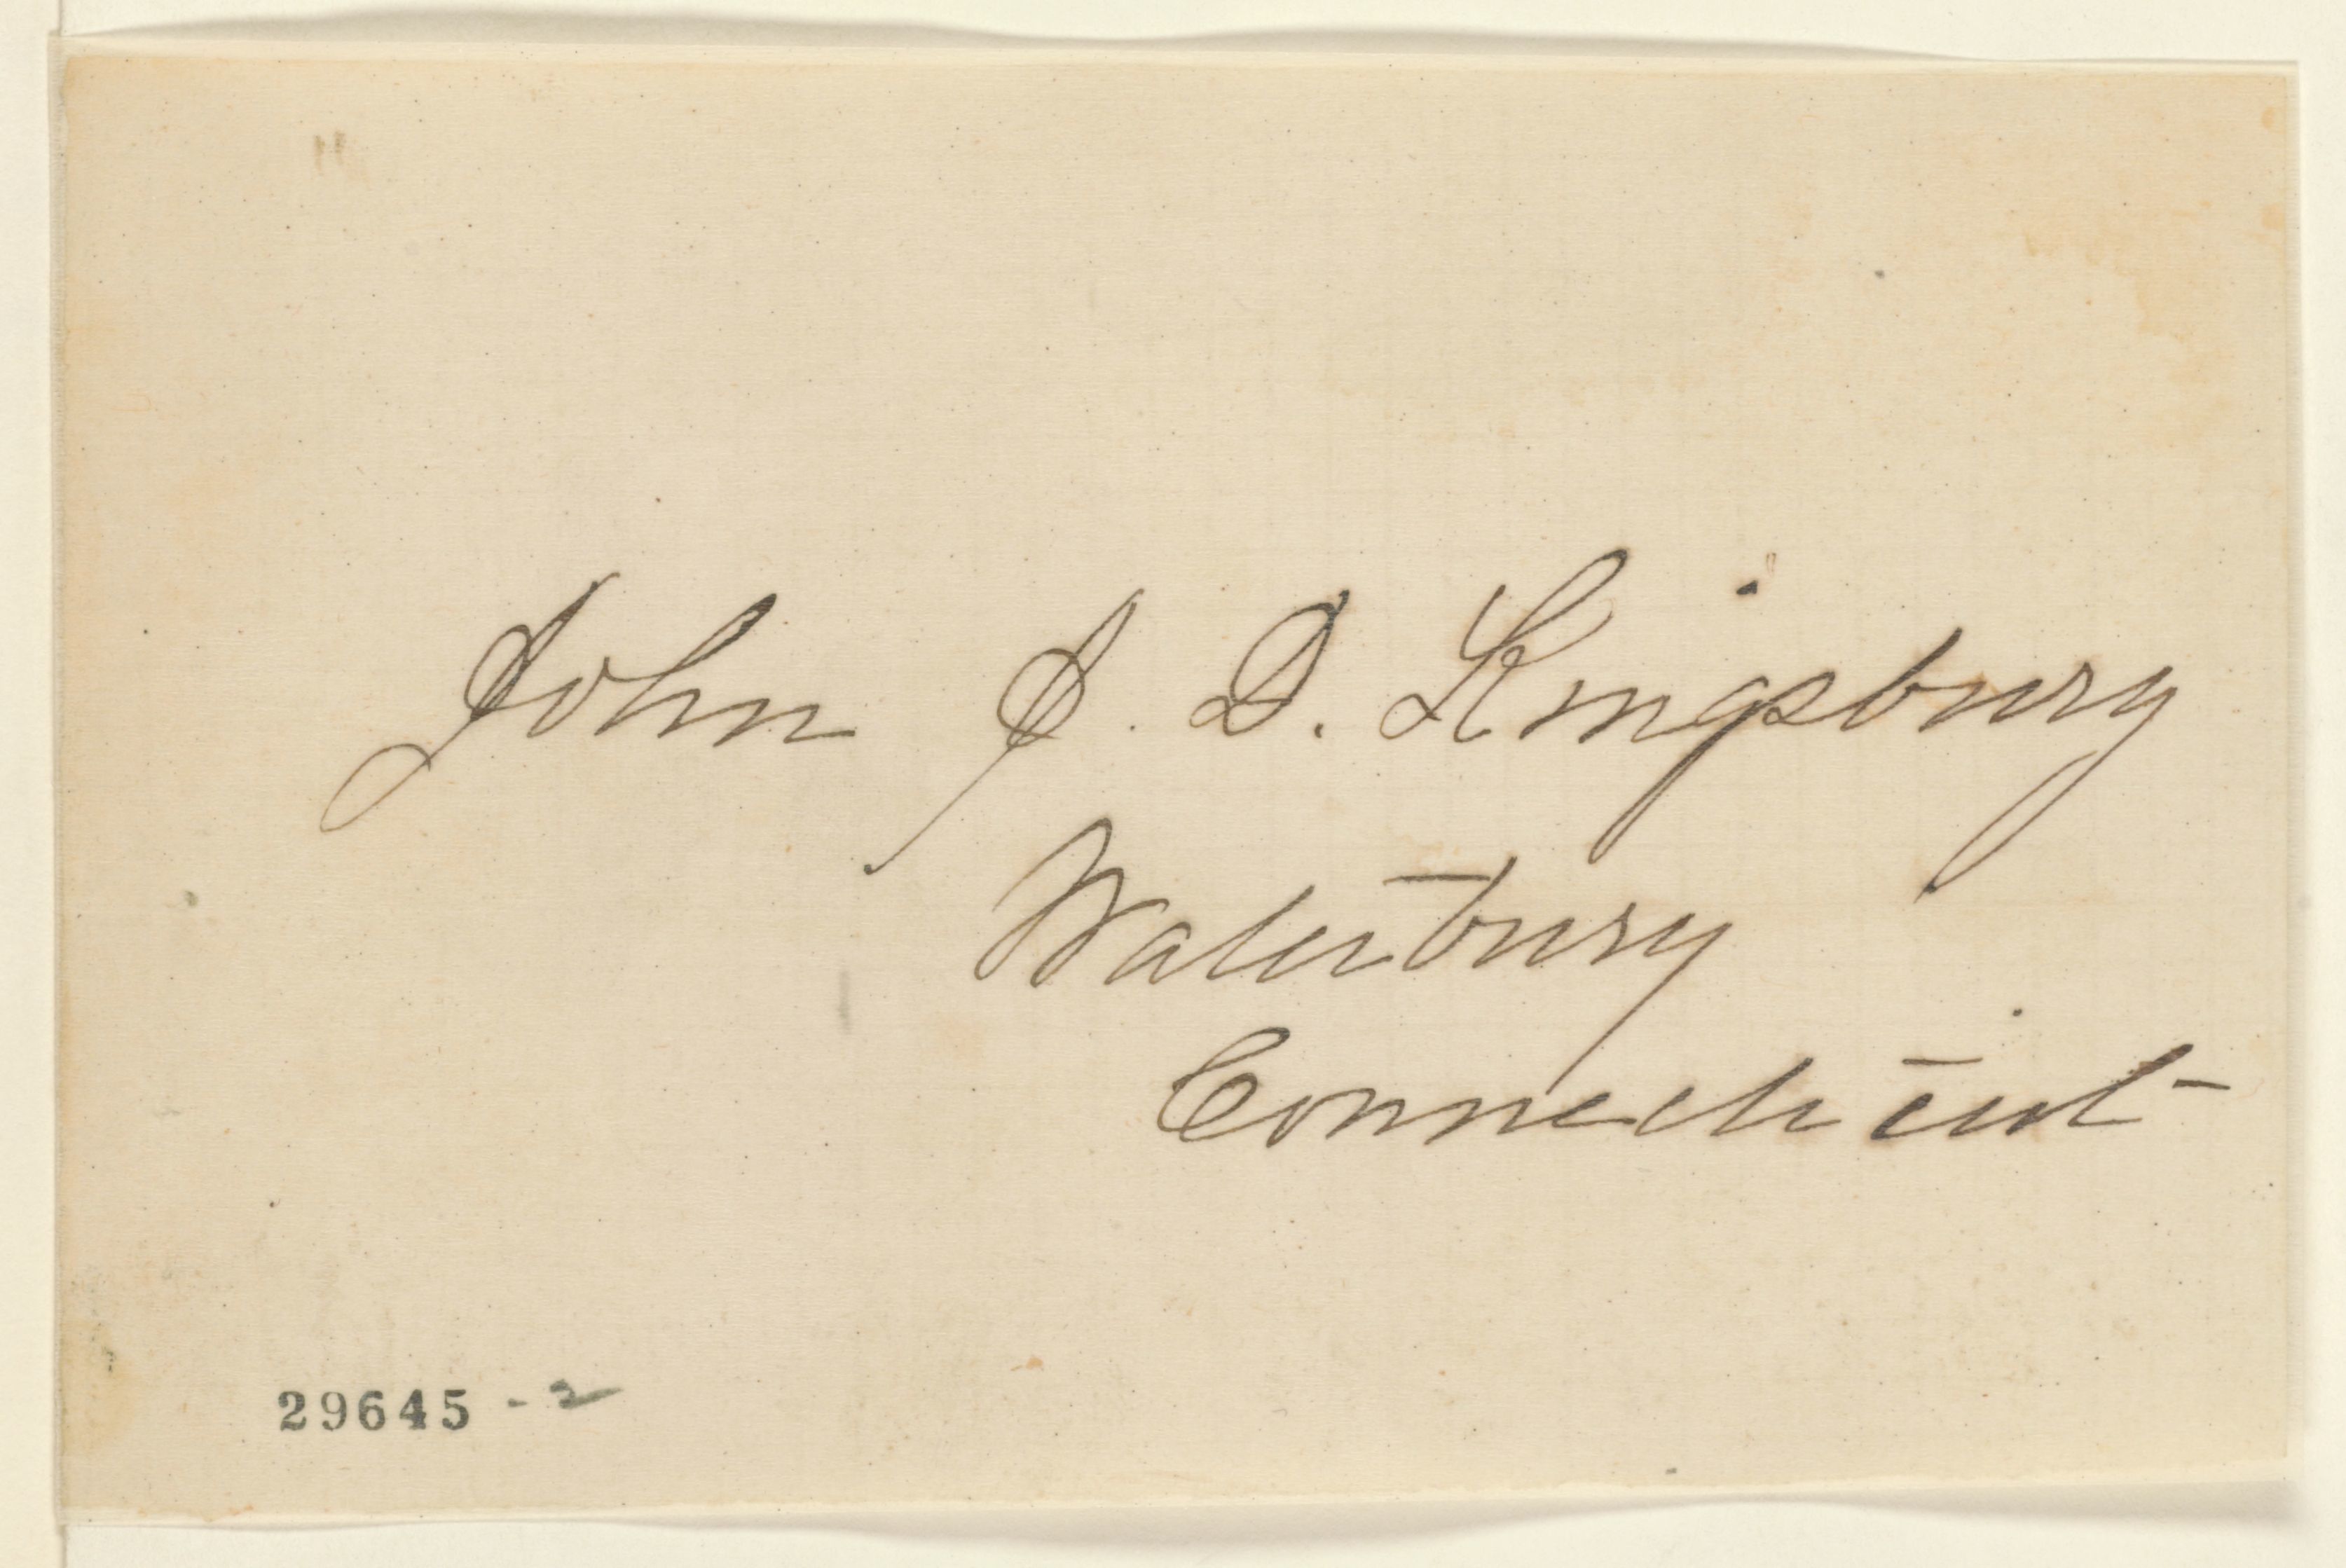 John J. D. Kingsbury
Waterbury
Connecticut
29645 - 2